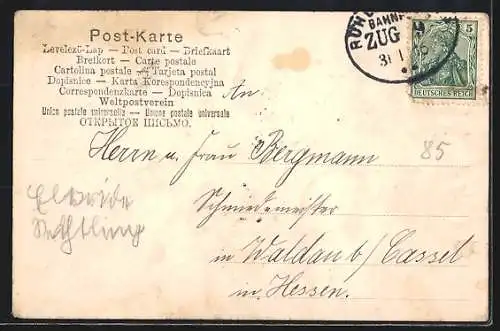 Post-Karte
Levelezö-Lap — Post card — Briefkaart
Brefkort — Carte postale
Cartolina postale — Tarjeta postal
Dopisnice — Karta Korespondencyjna
Correspondenzkarte — Dopisnica
Weltpostverein
Unione postale universelle — Unione postale universale
ОТКРЫТОЕ ПИСЬМО.
BAHNP
ZUG
31 1
5
DEUTSCHES REICH
An.
Herrn u. Frau Bergmann
85
Schmiedemeister
in Waldau b/ Cassel
in Hessen.